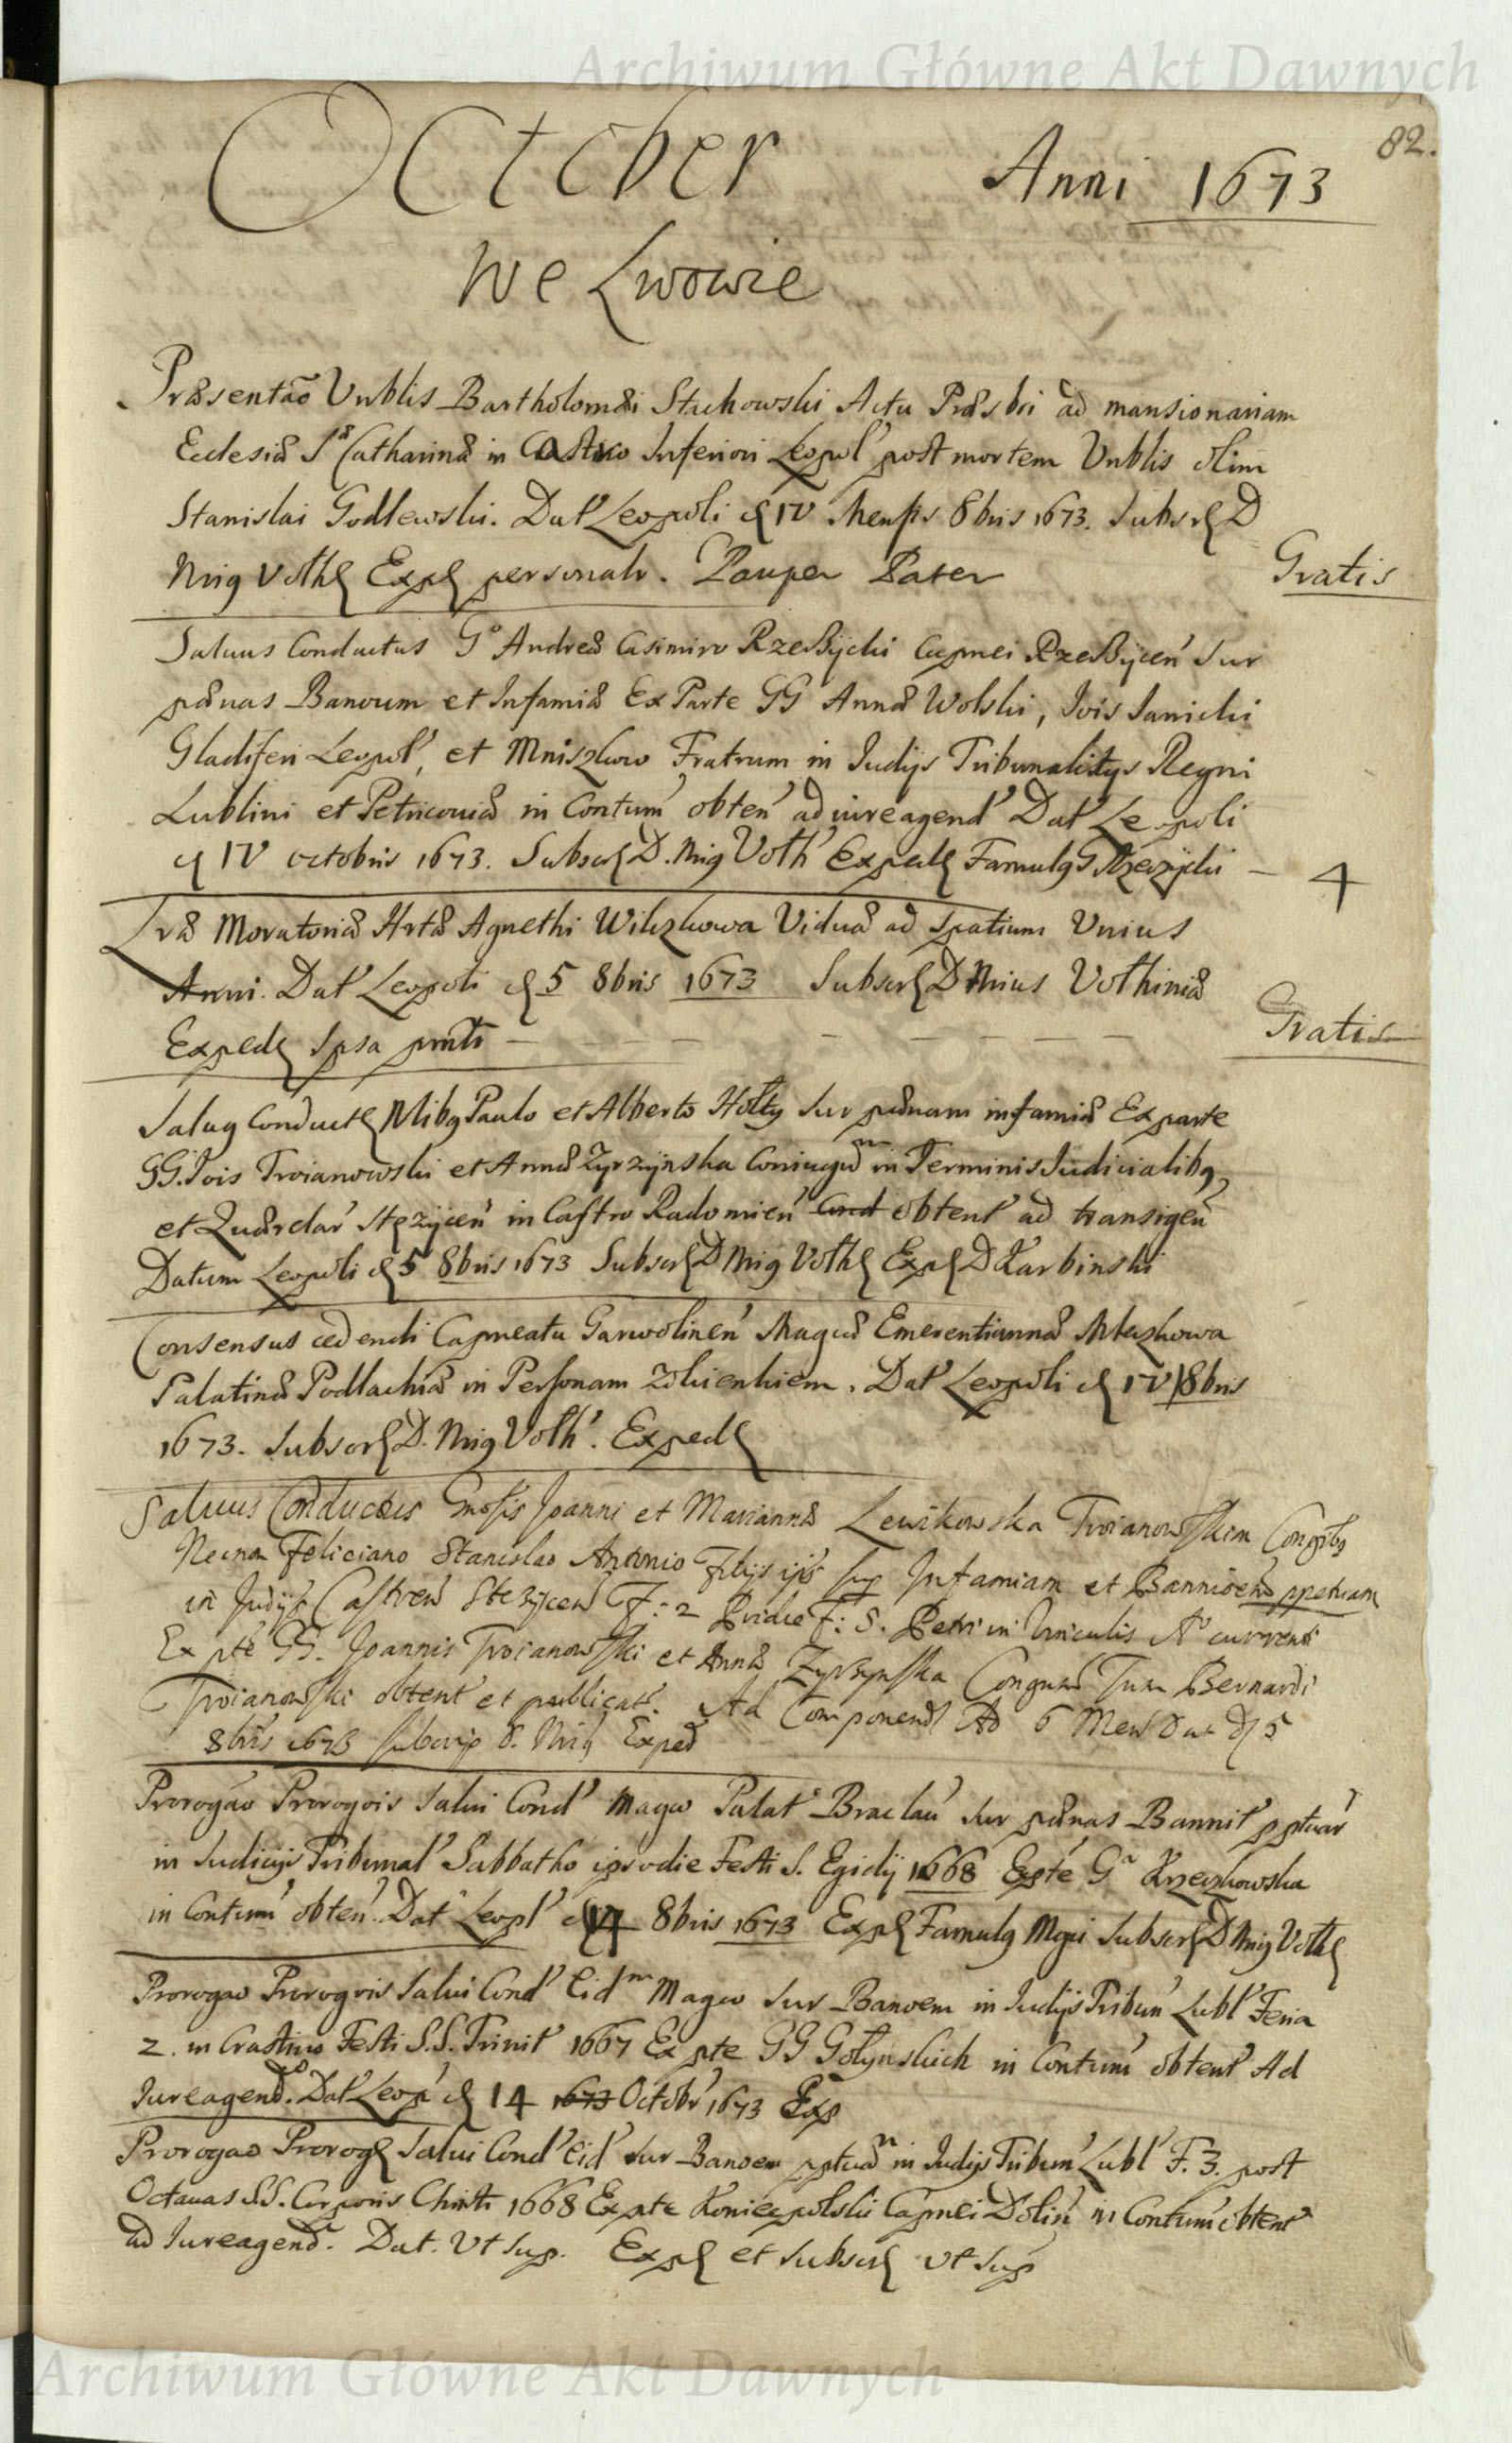 Archiwum Główne Akt Dawnych
82.
October Anni 1673
We Lwowie
Præsentaõ Vnblis Bartholomæi Stachowski Actu Præsbri ad mansionariam
Ecclesiæ Sæ Catharinæ in Castro Inferiori Leopol' post mortem Vnblis olim
Stanislai Godlewski. Dat' Leopoli d IV Mensis 8bris 1673. Subsr D
Mig Voth Exp personalr. Pauper Pater
Gratis
Saluus Conductus Go Andreæ Casimiro Rzeßycki Capnei Rzeßycen' Sur
pænas Banoum et Infamiæ Ex Parte GG Annæ Wolski, Jois Janicki
Gladiferi Leopol', et Mniszkow Fratrum in Iudijs Tribunalitys Regni
Lublini et Petricouiæ in Contum' obten' ad iureagend' Dat' Leopoli
d IV octobris 1673. Subscr D. Mig Voth' Exped Famulg G Rzezycki – 4
Lræ Moratoriæ Hrtæ Agnethi Wilczkowa Viduæ ad Spatium Vnius
Anni. Dat' Leopoli d 5 8bris 1673 Subscr D Mius Vothiniæ
Exped Ipsa pntr
Gratis
Salug Conduct Nlibg Paulo et Alberto Holty Sur pænam infamiæ Ex parte
GG. Jois Troianowski et Annæ Zyrzynska Coniugum in Terminis Iudicialibg
et Quærelar' Stezycen' in Castro Radomien' obtent' ad transigen'
Datum Leopoli d 5 8bris 1673 Subscr D Mig Voth Exp D Karbinski
Consensus cedendi Capneatu Garwolinen' Magcæ Emerentiannæ
Palatinæ Podlachiæ in Personam Zolkienkiem. Dat' Leopoli d IV 8bris
1673. Subscr D. Mig Voth'. Exped
Saluus Conductus Gnosis Joanni et Mariannæ Lewikowska Troianowskim Congibg
Necnon Feliciano Stanislao Antonio Filijs ijs sup Infamiam et Bannioem ppetuam
in Judijs Castren' Stezycen' F: 2 Pridie F: S. Petri in Vinculis Ao currenti
Ex pte GG. Joannis Troianowski et Annæ Zyrzynska Congum Tum Bernardi
Troianowski obtent' et publicat'. Ad Componend Ad 6 Mens Dat d 5
8bris 1673 subscrip D. Mig Exped
Prorogao Prorogois Salui Cond' Magco Palat' Braclau' Sur pænas Bannit' pptuar'
in Iudicijs Tribunal' Sabbatho ipsodie Festi S. Egidij 1668 Expte Ga Krzeczkowska
in Contum' obten'. Dat' Leopl' d 4 8bris 1673 Exp Famulg Mgci Subscr D Mig Voth
Prorogao Prorogois Salui Cond' Eidm Magco Sur Banoem in Iudijs Tribun' Lubl' Feria
2. in Crastino Festi S.S. Trinit' 1667 Ex pte GG Gołynskich in Contum' obtent' Ad
Iureagend. Dat' Leop' d 14 1673 Octobr' 1673 Exp
Prorogao Prorog Salui Cond' Eid' Sur Banoem pptuam in Iudijs Tribun' Lubl' F. 3. post
Octauas S.S. Corporis Christi 1668 Ex pte Koniecpolski Capnei Dolin' in Contum' obtent'
ad Iureagend. Dat. Vt Sup. Exp et Subscr vt Sup
Archiwum Główne Akt Dawnych